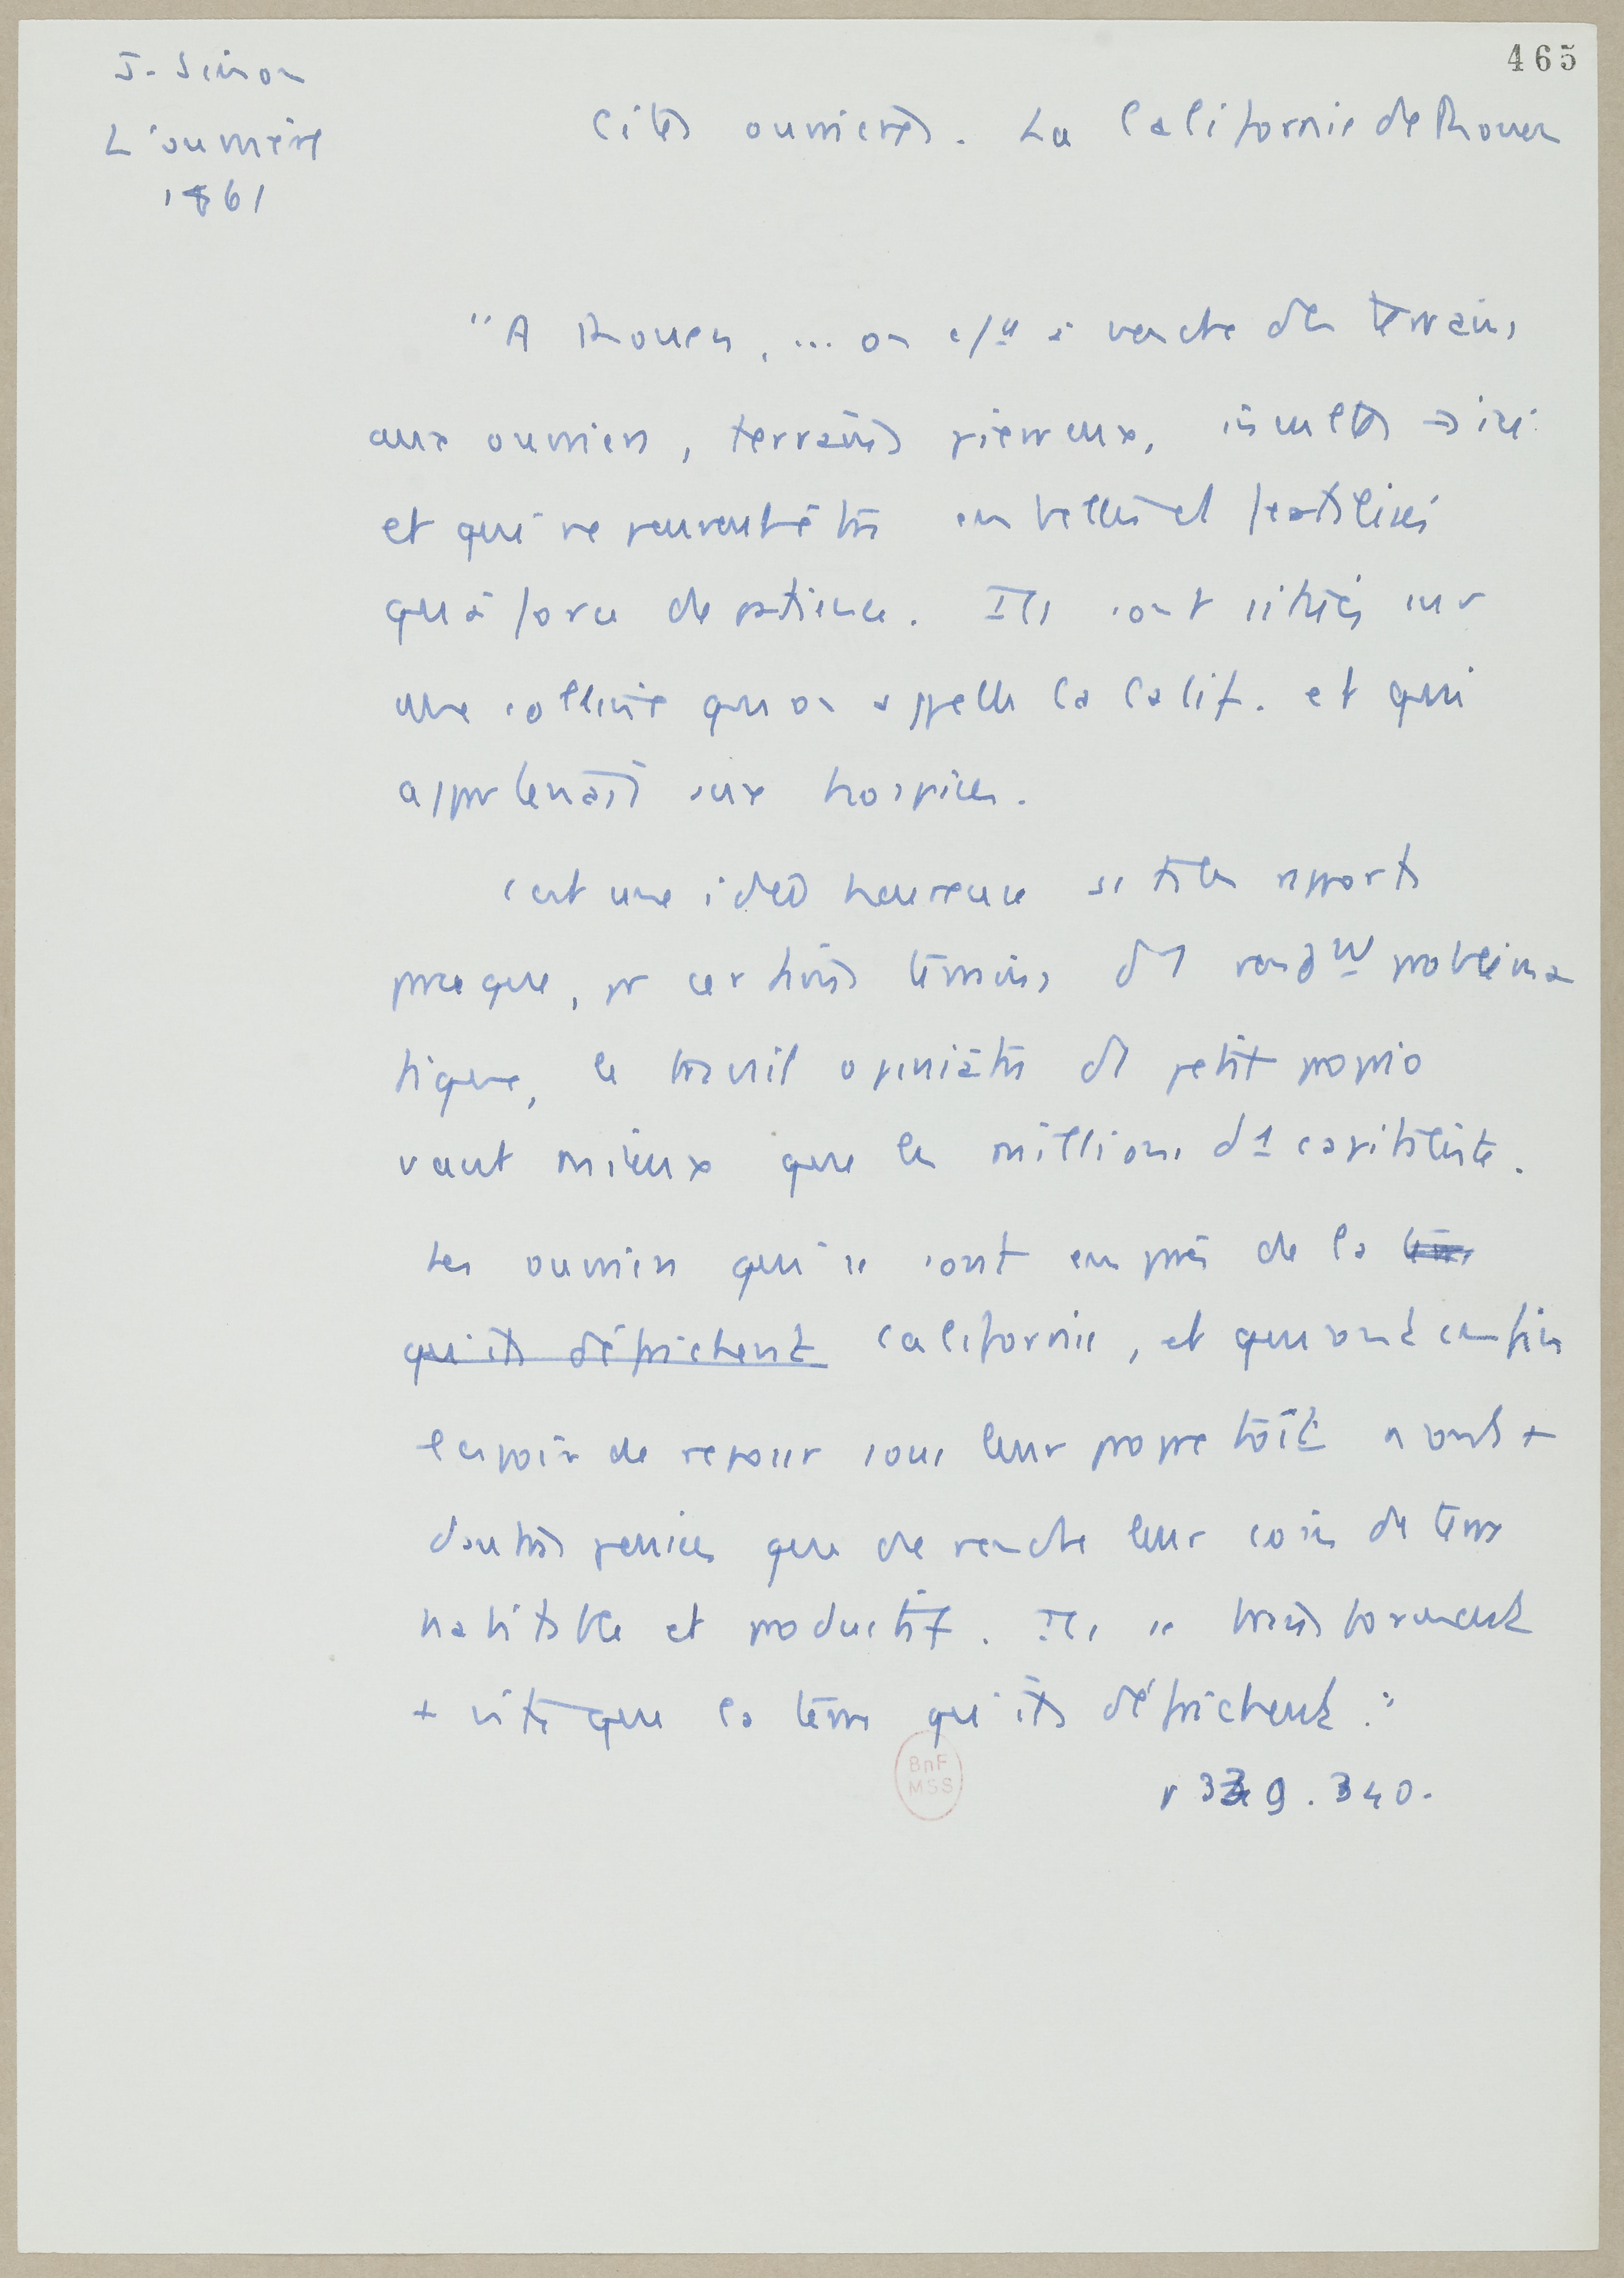 465
J. Simon
L'ouvrière
1861
Cités ouvrières. La Californie de Rouen
"A Rouen, ... on à vendre des terrains
aux ouvriers, terrains pierreux, incultes →ici
et qui ne peuvent être embellis et fertilisés
qu'à force de patience. Ils sont situés sur
une colline qu'on appelle la Calif. et qui
appartenait aux hospices.
C'est une idée heureuse si tables rapports
presque, pr certains terrains d'1 rendt problèma
tique, le travail opiniâtre d'1 petit proprio
vaut mieux que les millions d'1 capitaliste.
Les ouvriers qui se sont emparés de la
qu'ils défrichent Californie, et qui ont enfin
l'espoir de reposer sous leur propre toit n'ont +
d'autres pensées que de rendre leur coin de terre
habitable et productif. Ils se transforment
+ vite que la terre qu'ils défrichent."
BnF
MSS
p 339.340.